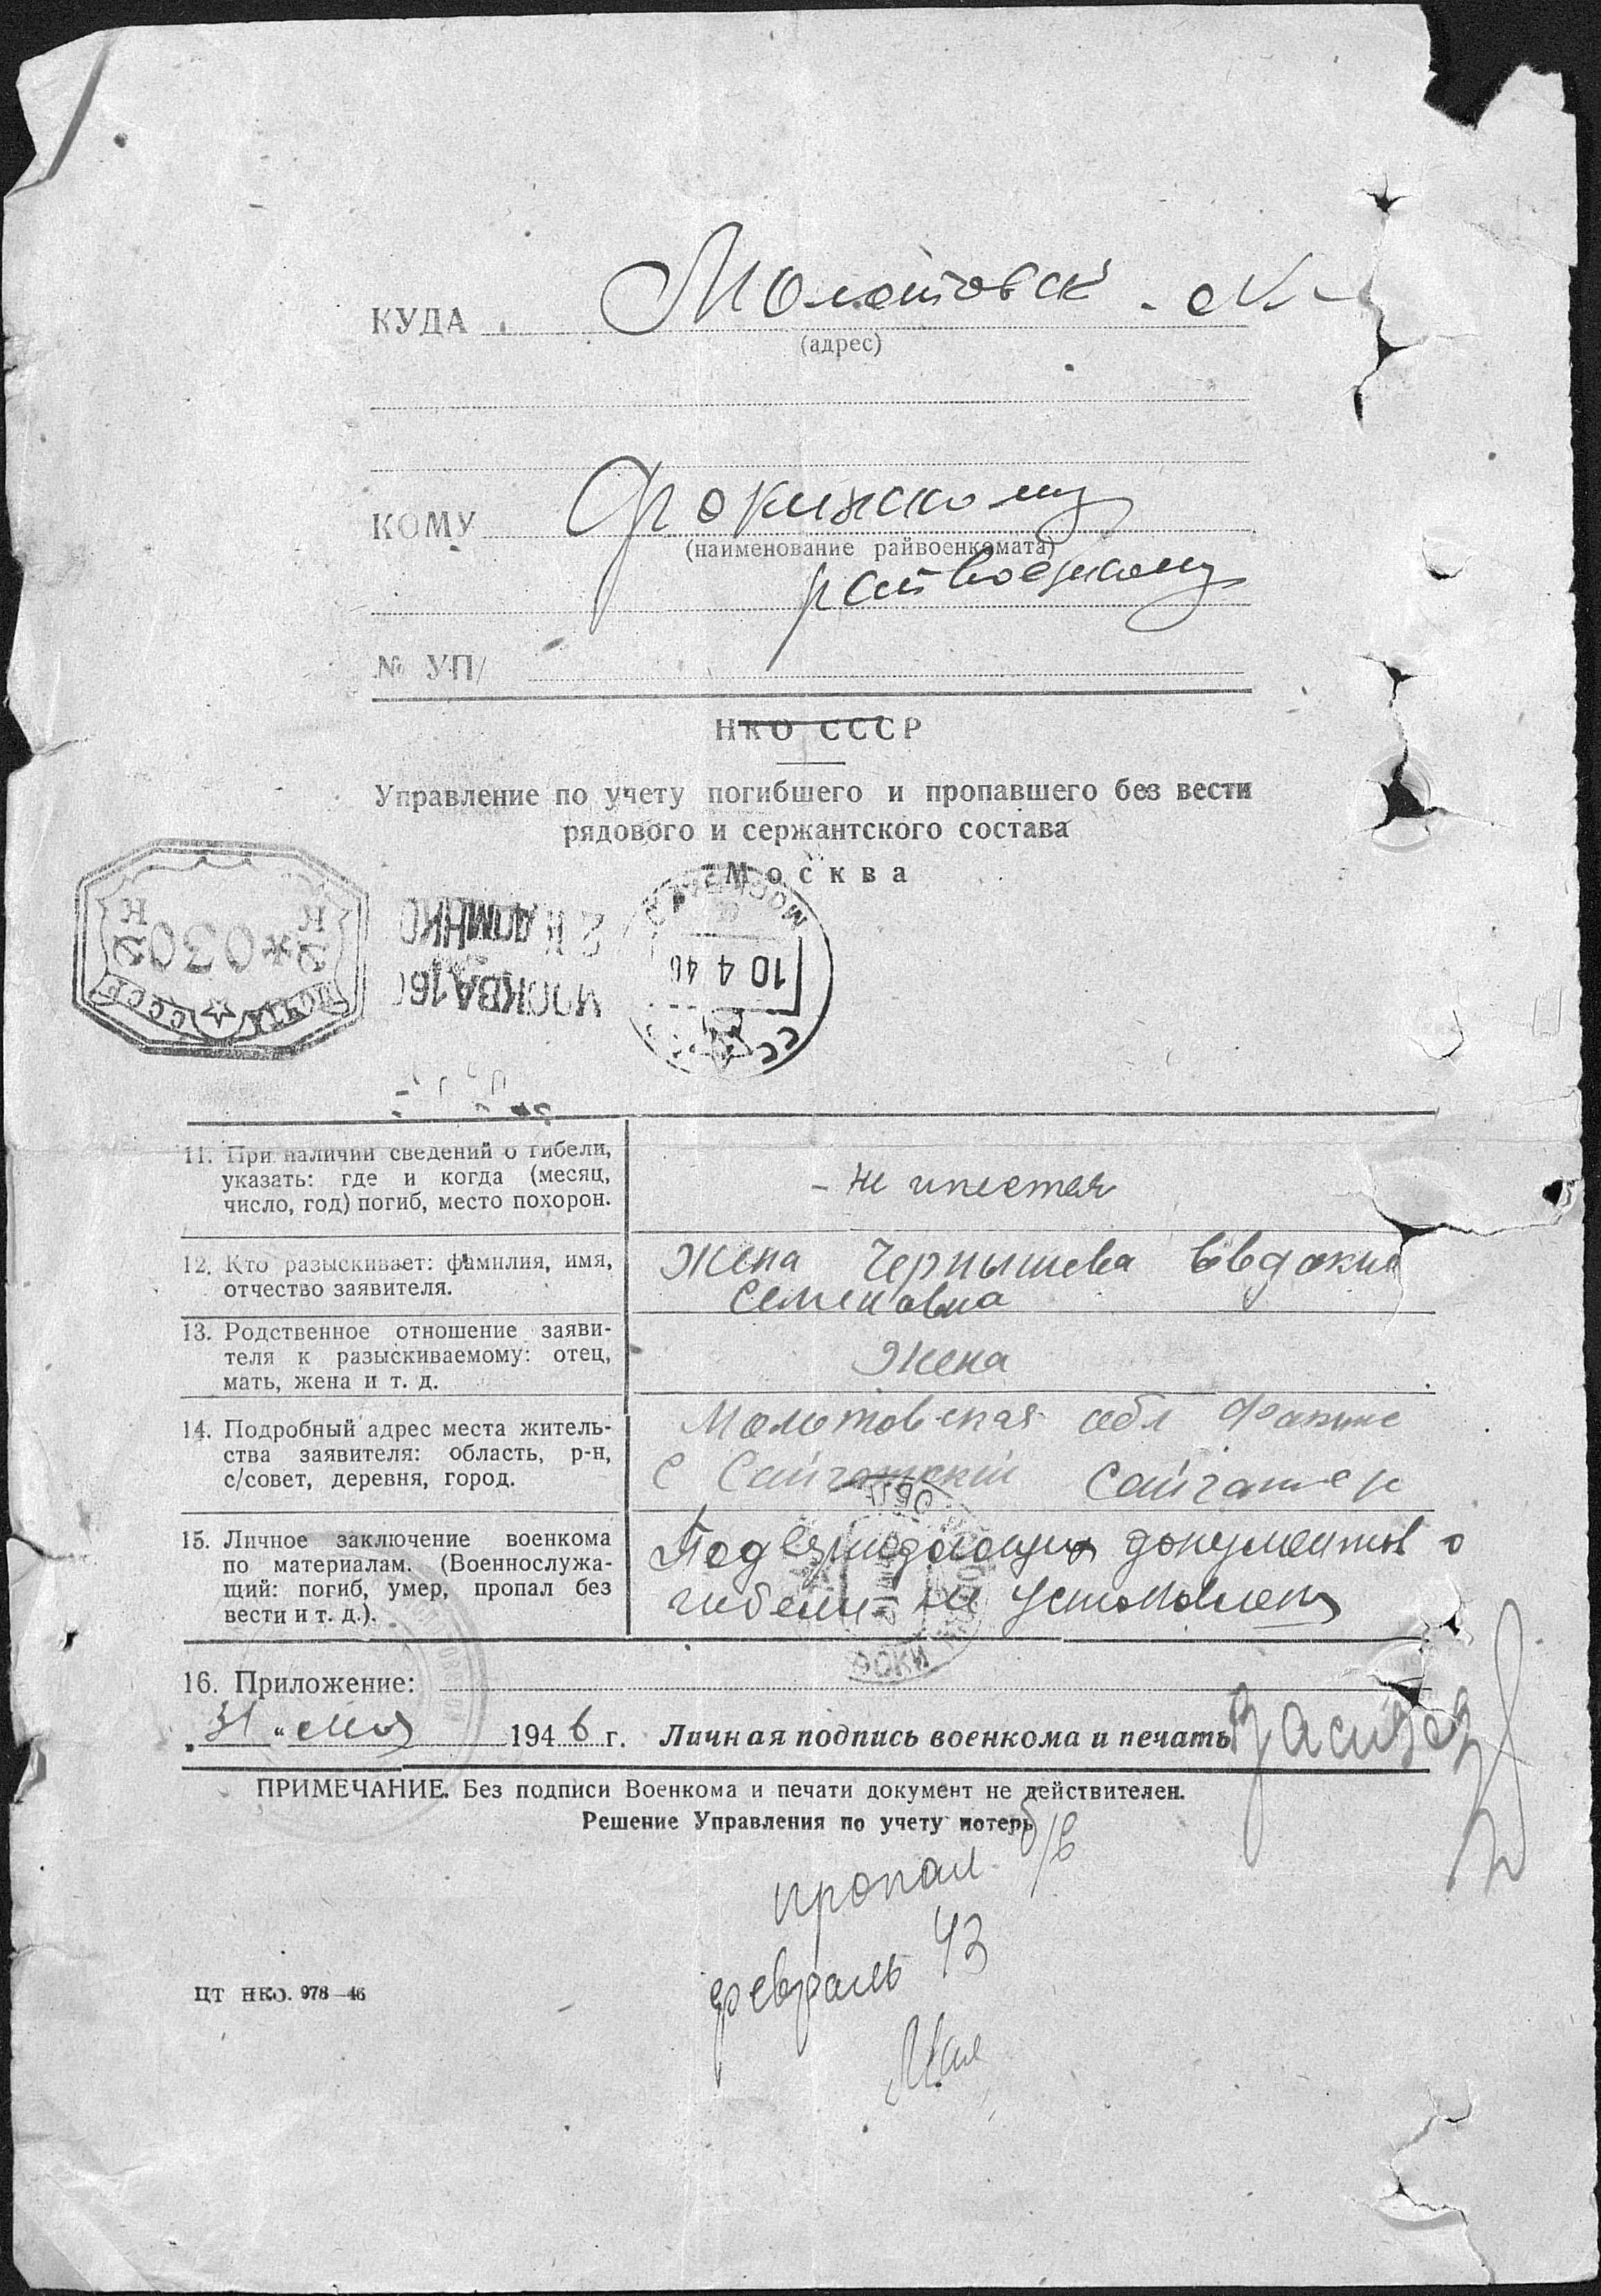 КУДА Молотовск
(адрес)
КОМУ Фокинскому
(наименование райвоенкомата)
райвоенкому
№ УП/
НКО СССР
Управление по учету погибшего и пропавшего без вести
рядового и сержантского состава
Москва
ПОЧТА СССР
*030
К К
МОСКВА
10 4 46
СССР
11. При наличии сведений о гибели,
указать: где и когда (месяц,
число, год) погиб, место похорон.
- не имеется
12. Кто разыскивает: фамилия, имя,
отчество заявителя.
Жена Чернышева Евдокия
Семеновна
13. Родственное отношение заяви-
теля к разыскиваемому: отец,
мать, жена и т. д.
Жена
14. Подробный адрес места житель-
ства заявителя: область, р-н,
с/совет, деревня, город.
Молотовская обл Фокинс
с Сайгатский Сайгатс
15. Личное заключение военкома
по материалам. (Военнослужа-
щий: погиб, умер, пропал без
вести и т. д.).
Подтверждающих документов о
гибели не установлено
16. Приложение:
„31" мая 1946 г. Личная подпись военкома и печать
ПРИМЕЧАНИЕ. Без подписи Военкома и печати документ не действителен.
Решение Управления по учету потерь
пропал б/в
февраль 43
ЦТ НКО. 978—46